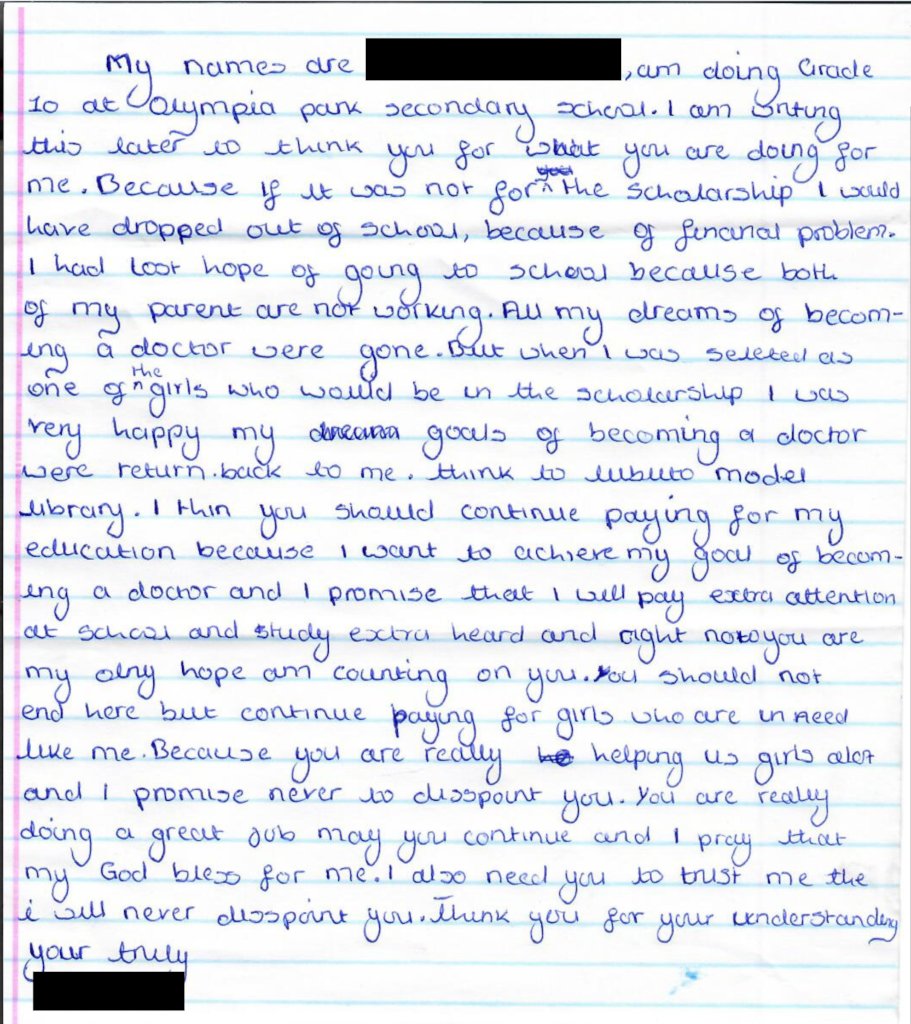 My names are , am doing Grade
10 at Olympia park secondary school. I am writing
this later to think you for what you are doing for
me. Because if it was not for you the scholarship I would
have dropped out of school, because of finanal problem.
I had loot hope of going to school because both
of my parent are not working. All my dreams of becom-
ing a doctor were gone. But when I was seleted as
one of the girls who would be in the scholarship I was
very happy my goals of becoming a doctor
were return back to me. think to lubuto model
library. I thin you should continue paying for my
education because I want to achieve my goal of becom-
ing a doctor and I promise that I will pay extra attention
at school and study extra heard and right now you are
my olny hope am counting on you. You should not
end here but continue paying for girls who are in need
like me. Because you are really helping us girls alot
and I promise never to disspoint you. You are really
doing a great job may you continue and I pray that
my God bless for me. I also need you to trust me the
i will never disspoint you. Think you for your understanding
your truly